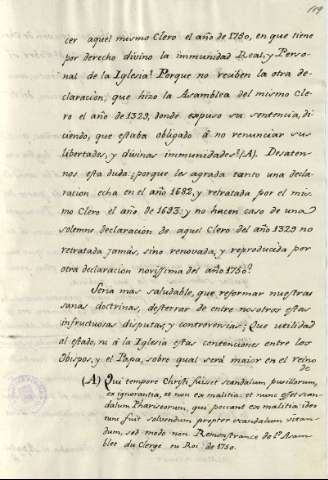 119
cer aquel mismo Clero el año de 1750, en que tiene
por derecho divino la immunidad Real, y Perso-
nal de la Iglesia? Porque no reciben la otra de-
claracion, que hizo la Asamblea del mismo Cle-
ro el año de 1329, donde expuso su sentencia, di-
ciendo, que estaba obligado á no renunciar sus
libertades, y divinas immunidades? (A). Desaten-
nos esta duda: ¿porque les agrada tanto una decla-
racion echa en el año 1682, y retratada por el mis-
mo Clero el año de 1693, y no hacen caso de una
solemne declaración de aquel Clero del año 1329 no
retratada jamás, sino renovada, y reproducida por
otra declaracion novissima del año 1750?
Seria mas saludable, que reformar nuestras
sanas doctrinas, desterrar de entre nosotros estas
infructuosas disputas, y controversias; Que utilidad
al estado, ni á la Iglesia estas contenciones entre los
Obispos, y el Papa, sobre qual será maior en el reino
de
(A) Qui tempore Christi fuisset scandalum pusillorum,
ex ignorantia, et non ex malitia: et nunc esset scan-
dalum Pharisæorum, qui peccant ex malitia: ideo
tunc fuit solvendum propter scandalum vitan-
dum, sed modo non. Remonstrance de l'Asam-
blee du Clerge au Roi de 1750.